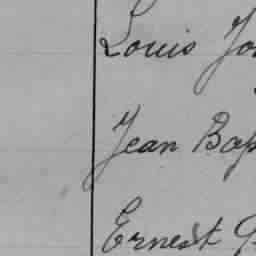 Louis Jos
Jean Bap
Ernest